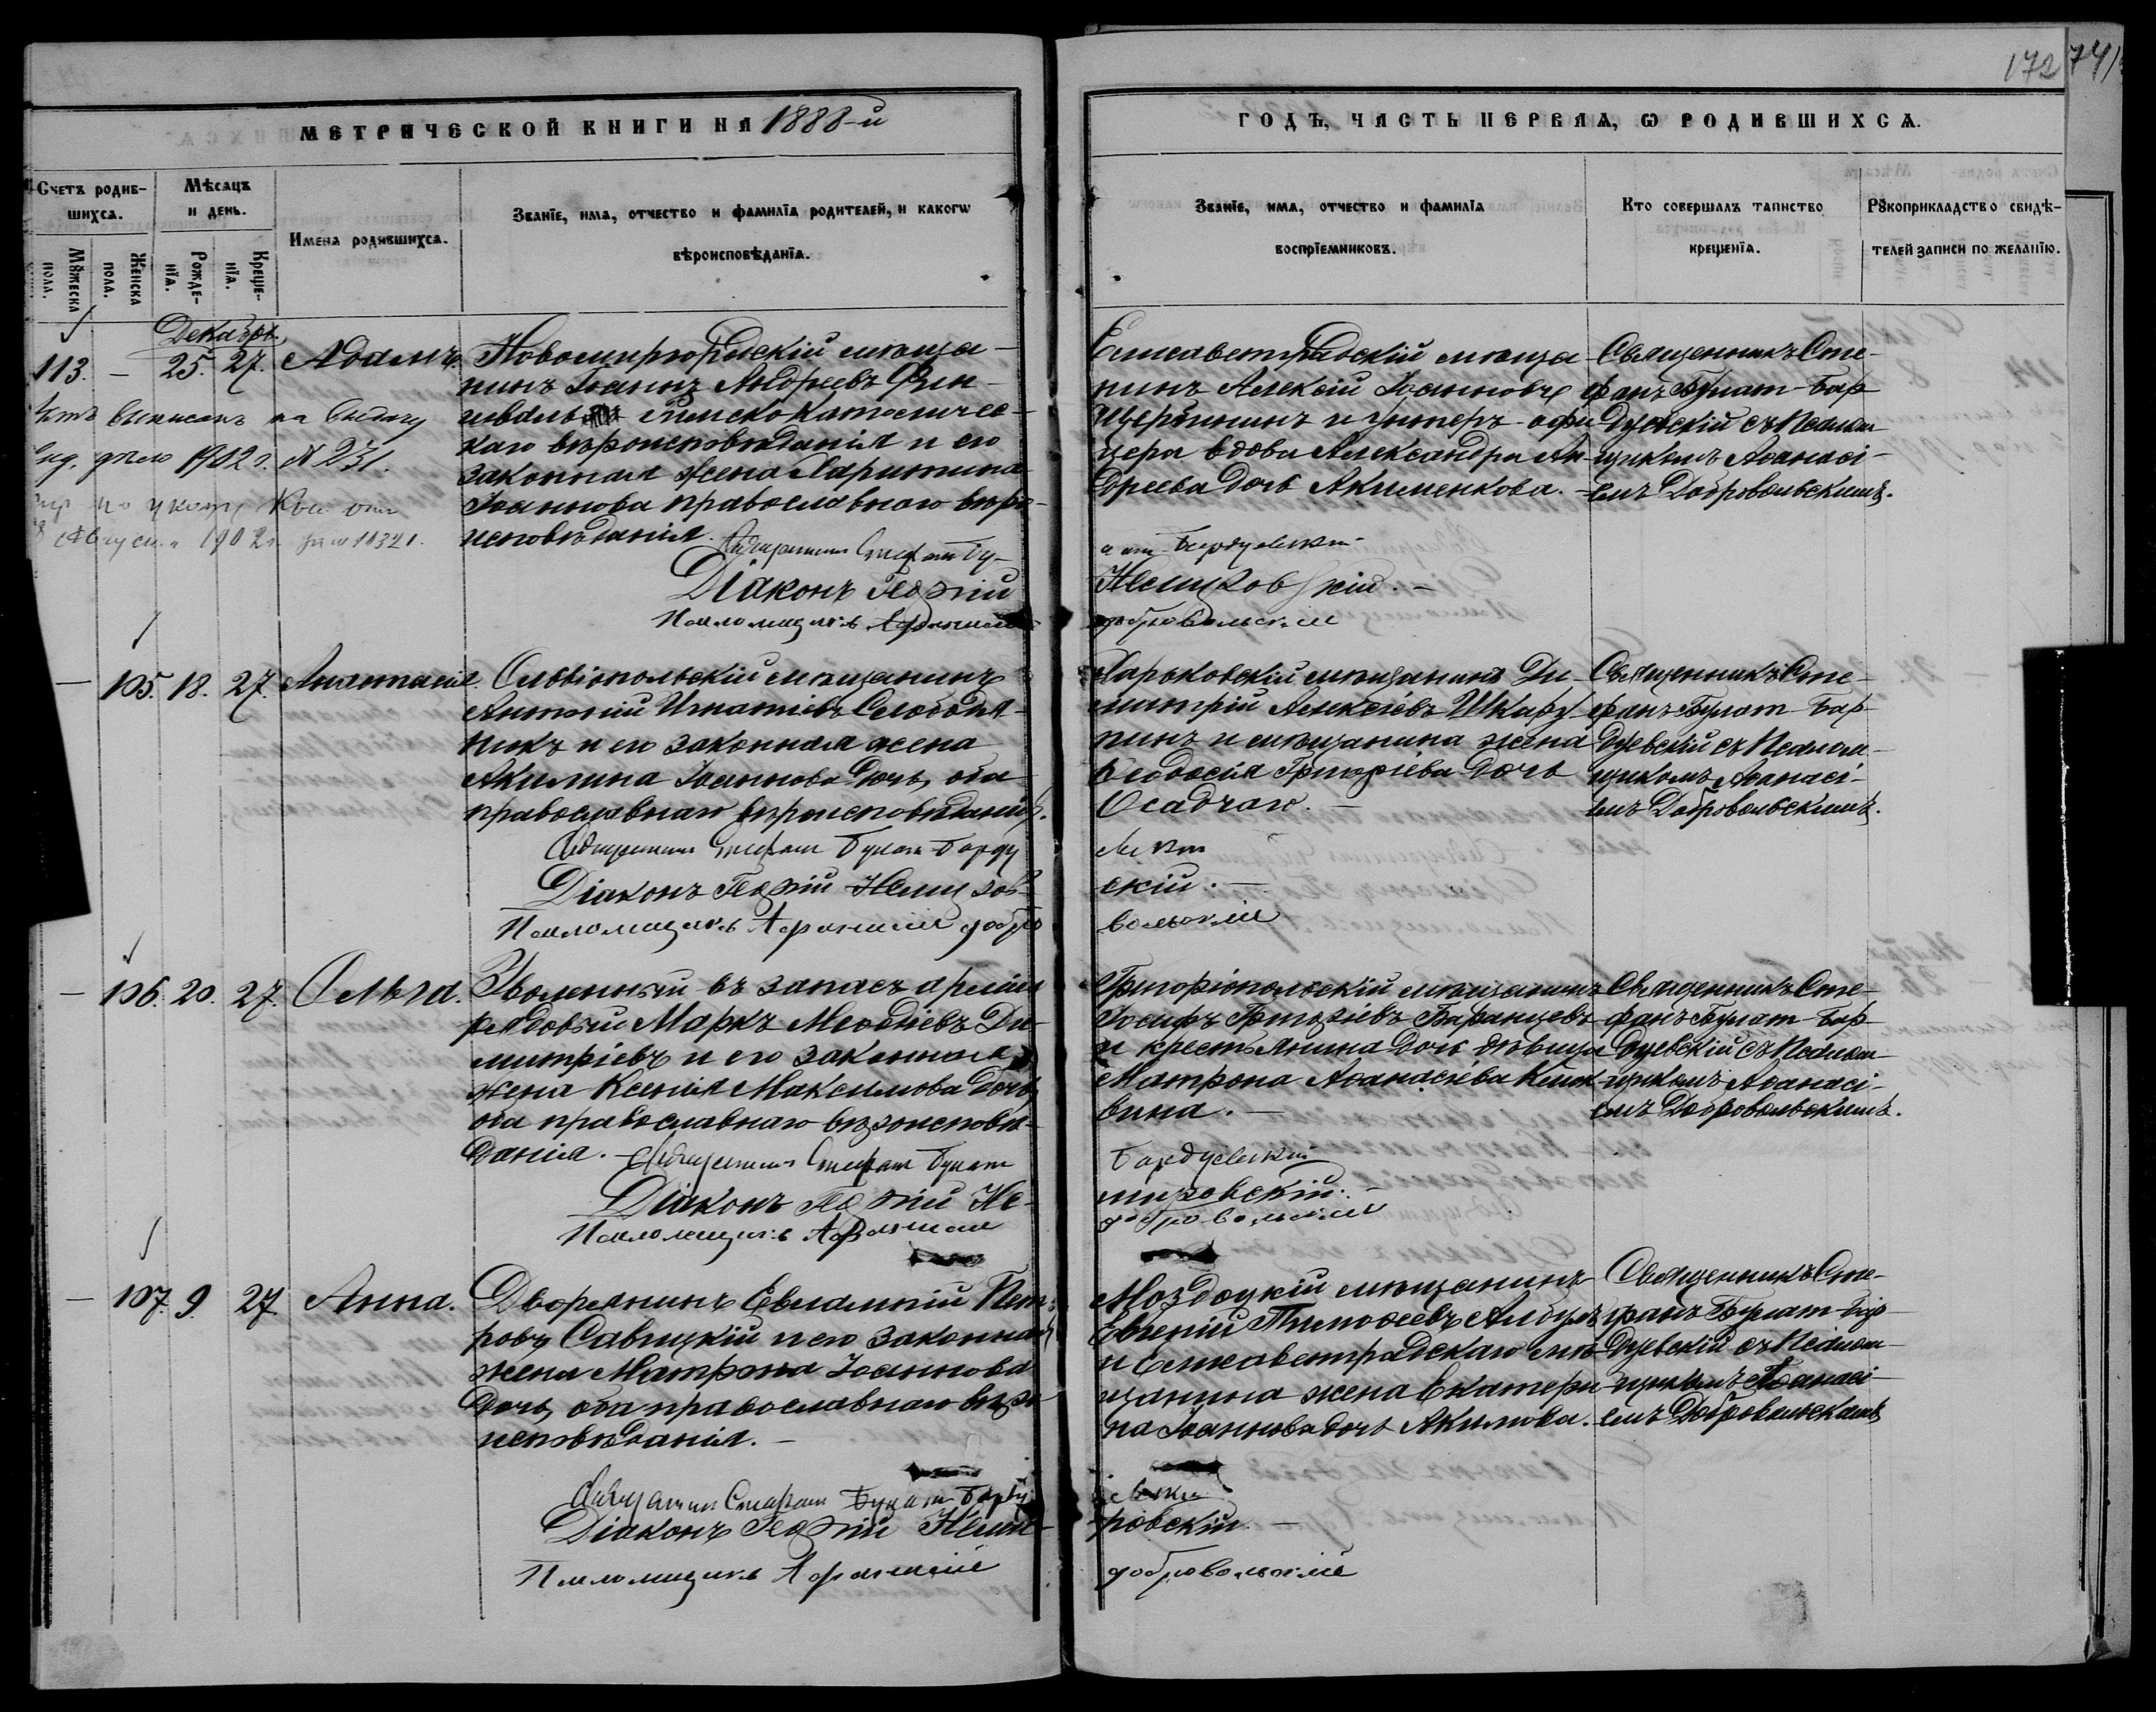 172
741
МЕТРИЧЕСКОЙ КНИГИ НА 1888-й
ГОДЪ, ЧАСТЬ ПЕРВАѦ, Ѡ РОДИВШИХСѦ.
Счетъ родив-
шихсѧ.
Мѣсѧцъ
и день.
Мꙋжеска
пола.
Женска
пола.
Рожде-
нїѧ.
Креще-
нїѧ.
Имена родившихсѧ.
Званїе, имѧ, отчество и фамилїѧ родителей, и какогѡ
вѣроисповѣданїѧ.
Званїе, имѧ, отчество и фамилїѧ
воспрїемниковъ.
Кто совершалъ таинство
крещенїѧ.
Рꙋкоприкладство свидѣ-
телей записи по желанїю.
Декабрь
113. — 25. 27. Адамъ.
Новомиргородскій мѣща-
нинъ Іоаннъ Андреевъ
римскокатоличес-
каго вѣроисповѣданія и его
законная жена Харитина
Іоаннова православнаго вѣро-
исповѣданія.
выписанъ на выдачу
1902 г. № 231.
по указу
1902 г. за № 10321.
Священникъ Стефанъ Бу-
Діаконъ Георгій
Псаломщикъ Афанасій
Елисаветградскій мѣща-
нинъ Алексій Іоанновъ
Щербининъ и унтеръ-офи-
цера вдова Александра Ан-
дреева дочь Акименкова. —
латъ-Бардуевскій
Немировскій. —
Добровольскій
Священникъ Сте-
фанъ Булат-Бар-
дуевскій съ Псалом-
щикомъ Аѳанасі-
емъ Добровольскимъ.
— 105. 18. 27. Анастасія.
Ольвіопольскій мѣщанинъ
Антоній Игнатьевъ Слободя-
никъ и его законная жена
Акилина Іоаннова дочь, оба
православнаго вѣроисповѣданія.
Священникъ Стефанъ Булатъ-Барду
Діаконъ Георгій Немиров-
Псаломщикъ Афанасій Добро
Харьковскій мѣщанинъ Ди-
митрій Алексіевъ Шкару-
пинъ и мѣщанина жена
Ѳеодосія Григоріева дочь
Осадчаго. —
евскій
скій. —
вольскій
Священникъ Сте-
фанъ Булат-Бар-
дуевскій съ Псалом-
щикомъ Аѳанасі-
емъ Добровольскимъ.
— 106. 20. 27. Ольга.
Уволенный въ запасъ арміи
рядовый Маркъ Меѳодіевъ Ди-
митріевъ и его законная
жена Ксенія Максимова дочь,
оба православнаго вѣроисповѣ-
данія. — Священникъ Стефанъ Булатъ
Діаконъ Георгій Не-
Псаломщикъ Афанасій
Григоріопольскій мѣщанинъ
Іосифъ Григоріевъ Баранцевъ
и крестьянина дочь дѣвица
Матрона Аѳанасіева
вина. —
Бардуевскій
мировскій. —
Добровольскій
Священникъ Сте-
фанъ Булат-Бар-
дуевскій съ Псалом-
щикомъ Аѳанасі-
емъ Добровольскимъ.
— 107. 9. 27 Анна.
Дворянинъ Евлампій Пет-
ровъ Савицкій и его законная
жена Матрона Іоаннова
дочь, оба православнаго вѣро-
исповѣданія. —
Священникъ Стефанъ Булатъ-Барду
Діаконъ Георгій Неми-
Псаломщикъ Афанасій
Моздокскій мѣщанинъ
Евгеній Тимоѳеевъ
и Елисаветградскаго мѣ-
щанина жена Екатери-
на Іоаннова дочь Акимова.
евскій
ровскій. —
Добровольскій
Священникъ Сте-
фанъ Булат-Бар-
дуевскій съ Псалом-
щикомъ Аѳанасі-
емъ Добровольскимъ